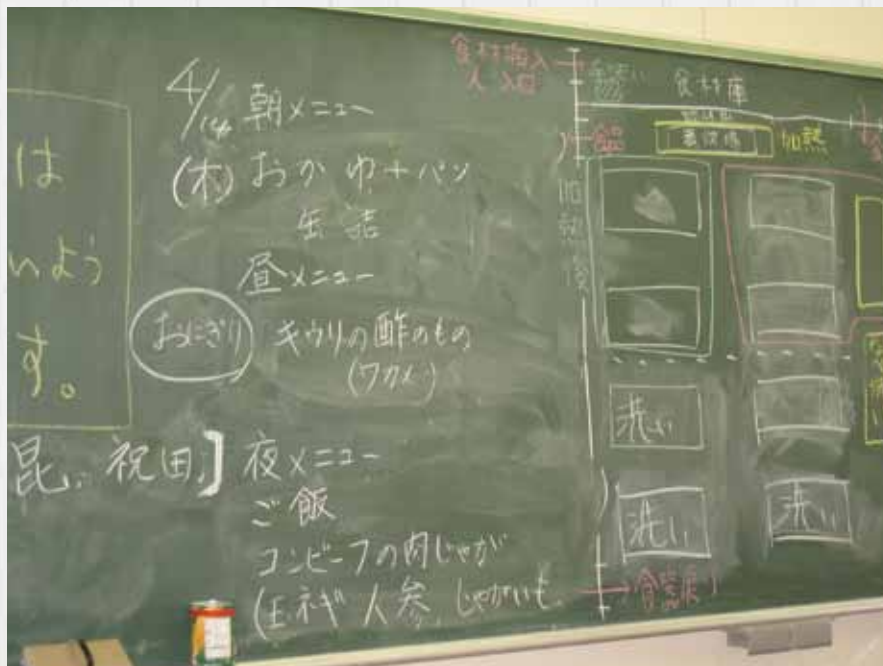 は
いよう
す。
昆、祝田］
4/14 朝メニュー
(木) おかゆ+パン
缶詰
昼メニュー
おにぎり キウリの酢のもの
(ワカメ)
夜メニュー
ご飯
コンビーフの肉じゃが
(玉ネギ 人参 じゃがいも
食材搬入
人 入口
食材庫
加熱
加熱後
洗い
洗い
洗い